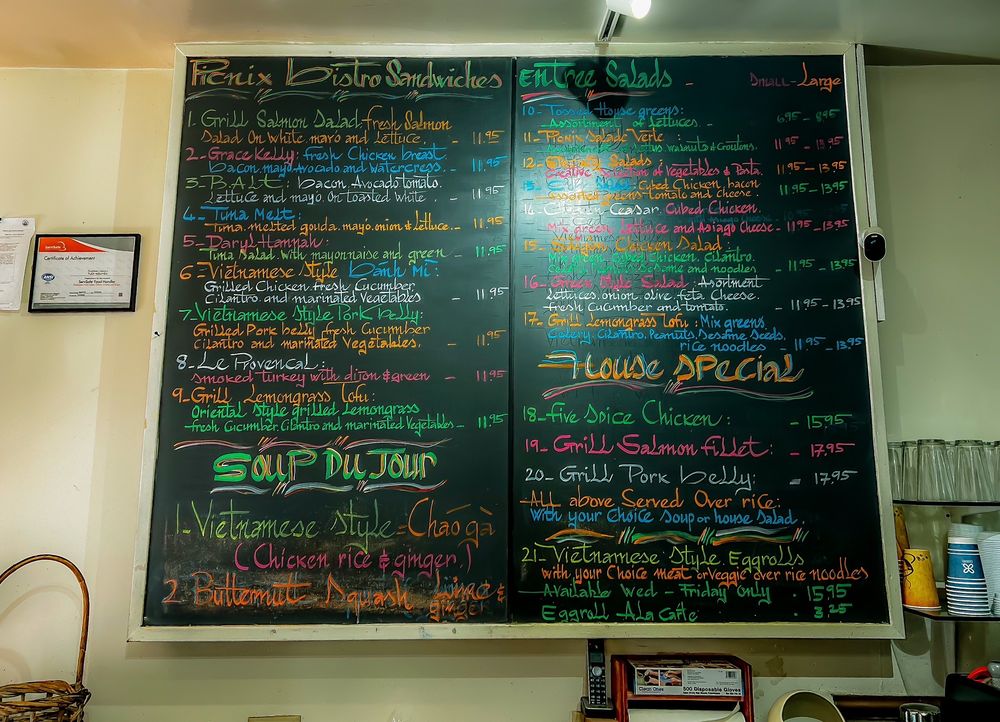 Picnix Bistro Sandwiches
1. Grill Salmon Salad, fresh Salmon
Salad on white, mayo and Lettuce. - 11.95
2- Grace Kelly: fresh Chicken breast,
bacon, mayo, Avocado and watercress. - 11.95
3- B.A.L.T: bacon, Avocado, tomato,
Lettuce and mayo, on toasted white. - 11.95
4- Tuna Melt:
Tuna, melted gouda, mayo, onion & Lettuce. - 11.95
5- Daryl Hannah:
Tuna Salad with mayonnaise and green - 11.95
6- Vietnamese Style Banh Mi:
Grilled Chicken, fresh Cucumber
Cilantro and marinated Vegetables - 11.95
7- Vietnamese Style Pork belly:
Grilled Pork belly, fresh Cucumber
cilantro and marinated Vegetables. - 11.95
8- Le Provencal:
smoked turkey with dijon & green - 11.95
9- Grill Lemongrass Tofu:
Oriental Style grilled Lemongrass
fresh Cucumber, Cilantro and marinated Vegetables - 11.95
Soup Du Jour
1- Vietnamese style = Cháo gà
(Chicken rice & ginger.)
2. Butternut Squash, Lime &
ginger
Entree Salads - Small - Large
10- Tossed House greens:
Assortment of Lettuces. - 6.95 - 8.95
11- Picnix Salade Verte
walnuts & Croutons. 11.95 - 13.95
12- Salads:
Creative Selection of Vegetables & Pasta. 11.95 - 13.95
13- Cubed Chicken, bacon
Assorted greens, tomato and cheese. - 11.95 - 13.95
14- Ceasar: Cubed Chicken,
Mix green Lettuce and Asiago Cheese - 11.95 - 13.95
15- Chicken Salad:
Mix green, Cubed Chicken, Cilantro,
Celery, Sesame and noodles - 11.95 - 13.95
16- Greek Style Salad: Assortment
Lettuces, onion, olive, feta Cheese,
fresh Cucumber and tomato. - 11.95 - 13.95
17- Grill Lemongrass Tofu: Mix greens,
Celery, Cilantro, Peanuts, Sesame Seeds,
rice noodles - 11.95 - 13.95
House Special
18- five Spice Chicken: - 15.95
19- Grill Salmon fillet: - 17.95
20- Grill Pork belly: - 17.95
- ALL above Served Over rice:
With your Choice Soup or house Salad.
21- Vietnamese Style Eggrolls
with your Choice meat or Veggie over rice noodles
- Available Wed - Friday Only - 15.95
Eggroll - A La Carte - 3.25
ServSafe
Certificate of Achievement
ServSafe Food Handler
Clean Ones
500 Disposable Gloves